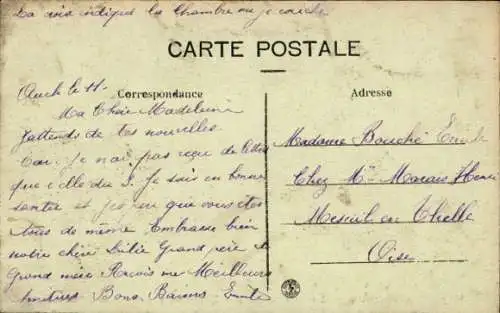 La croix indique la Chambre ou je couche
CARTE POSTALE
Correspondance
Adresse
Auch le 11.
Ma Chère Madeleine
J'attends de tes nouvelles
Car je n'ai pas reçu de lettre
que celle du 3. Je suis en bonne
santé et que vous êtes
tous de même Embrasse bien
notre chère Grand père et
Grand mère Reçois me Meilleurs
Bons Baisers Emile
Madame Bouché Emile
Chez Mr Marais Henri
Mesnil en Thelle
Oise